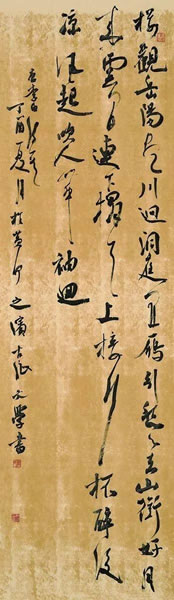 樓觀岳陽盡川迥洞庭開雁引愁心去山銜好月
來雲間連下榻天上接行杯醉後
涼風起吹人舞袖迴
李白
丁酉夏月於黃河之濱 文學書